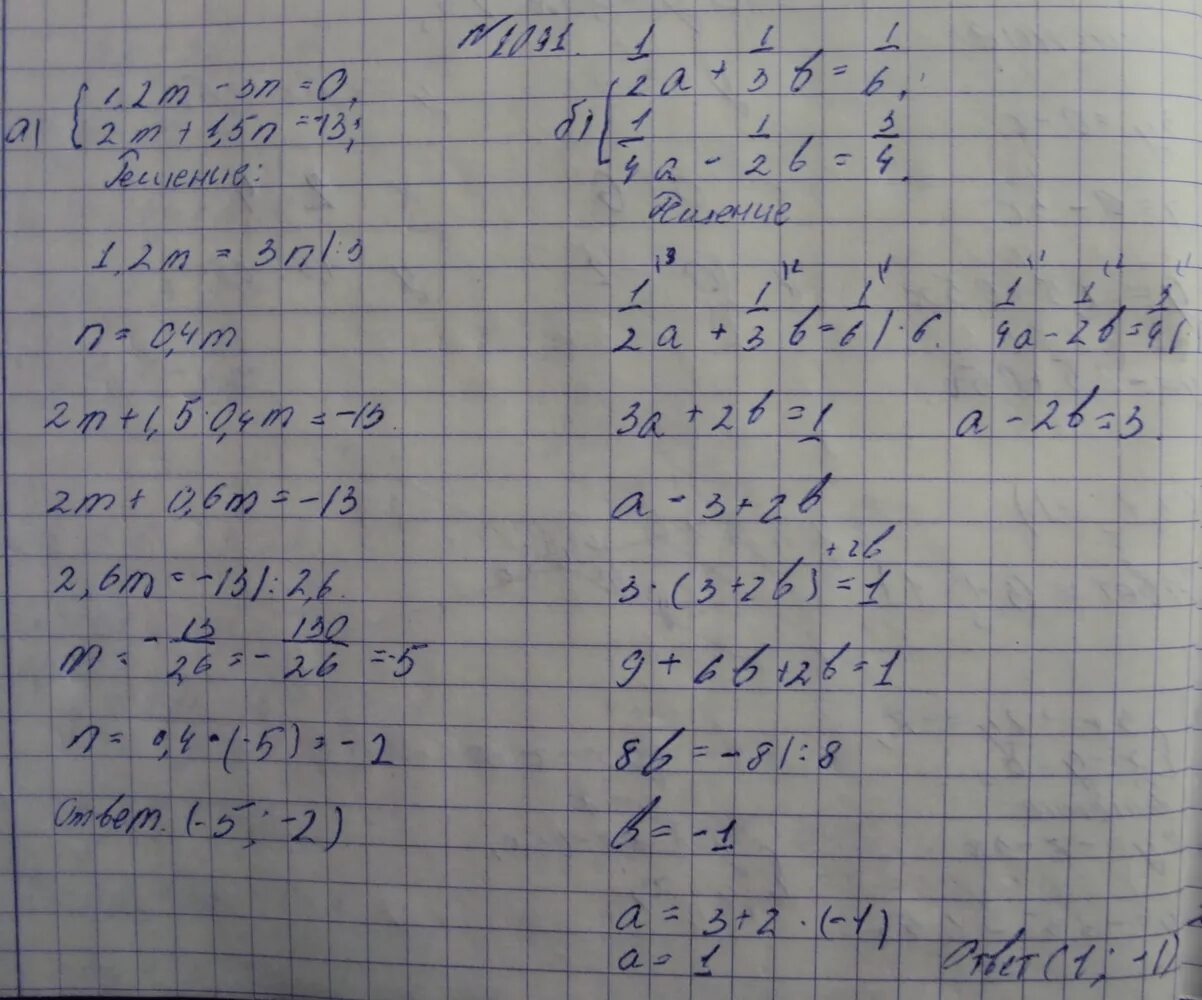 N1091.
а) { 1,2m - 3n = 0,
2m + 1,5n = -13;
Решение:
1,2m = 3n |:3
n = 0,4m
2m + 1,5·0,4m = -13.
2m + 0,6m = -13
2,6m = -13 |: 2,6.
m = - 13/2,6 = - 130/26 = -5
n = 0,4·(-5) = -2
Ответ. (-5; -2)
б) { 1/2 a + 1/3 b = 1/6,
1/4 a - 1/2 b = 3/4.
Решение
1/2 a + 1/3 b = 1/6 | · 6. 1/4 a - 1/2 b = 3/4 |
3a + 2b = 1 a - 2b = 3.
a - 3 + 2b
3·(3 + 2b) + 2b = 1
9 + 6b + 2b = 1
8b = -8 |: 8
b = -1
a = 3 + 2·(-1)
a = 1
Ответ (1; -1)